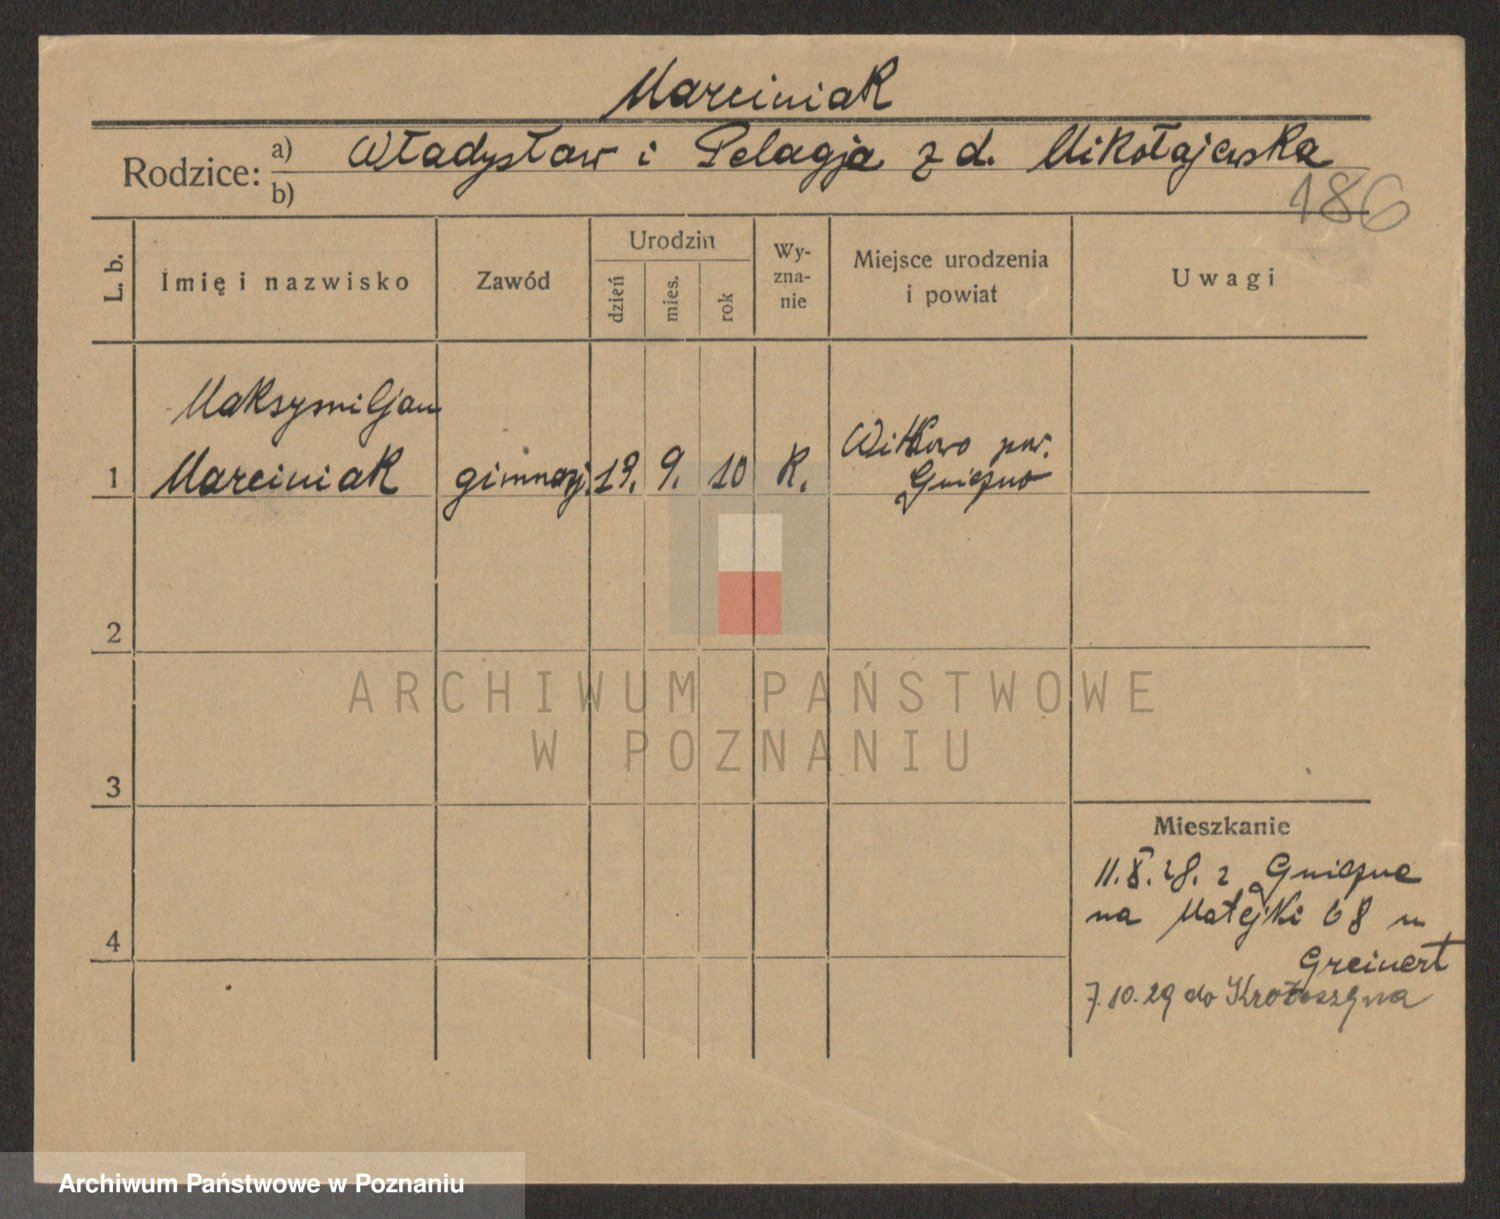 Marciniak
Rodzice: a) Władysław i Pelagja z d. Mikołajewska
b)
186
L. b.
Imię i nazwisko
Zawód
Urodzin
dzień
mies.
rok
Wy-
zna-
nie
Miejsce urodzenia
i powiat
Uwagi
Maksymiljan
1 Marciniak gimnazj. 19. 9. 10 K.
Witkowo pow.
Gniezno
2
ARCHIWUM PAŃSTWOWE
W POZNANIU
3
Mieszkanie
11.X.28. z Gniezna
na Matejki 68 u
Greinert
4
7.10.29 do Krotoszyna
Archiwum Państwowe w Poznaniu